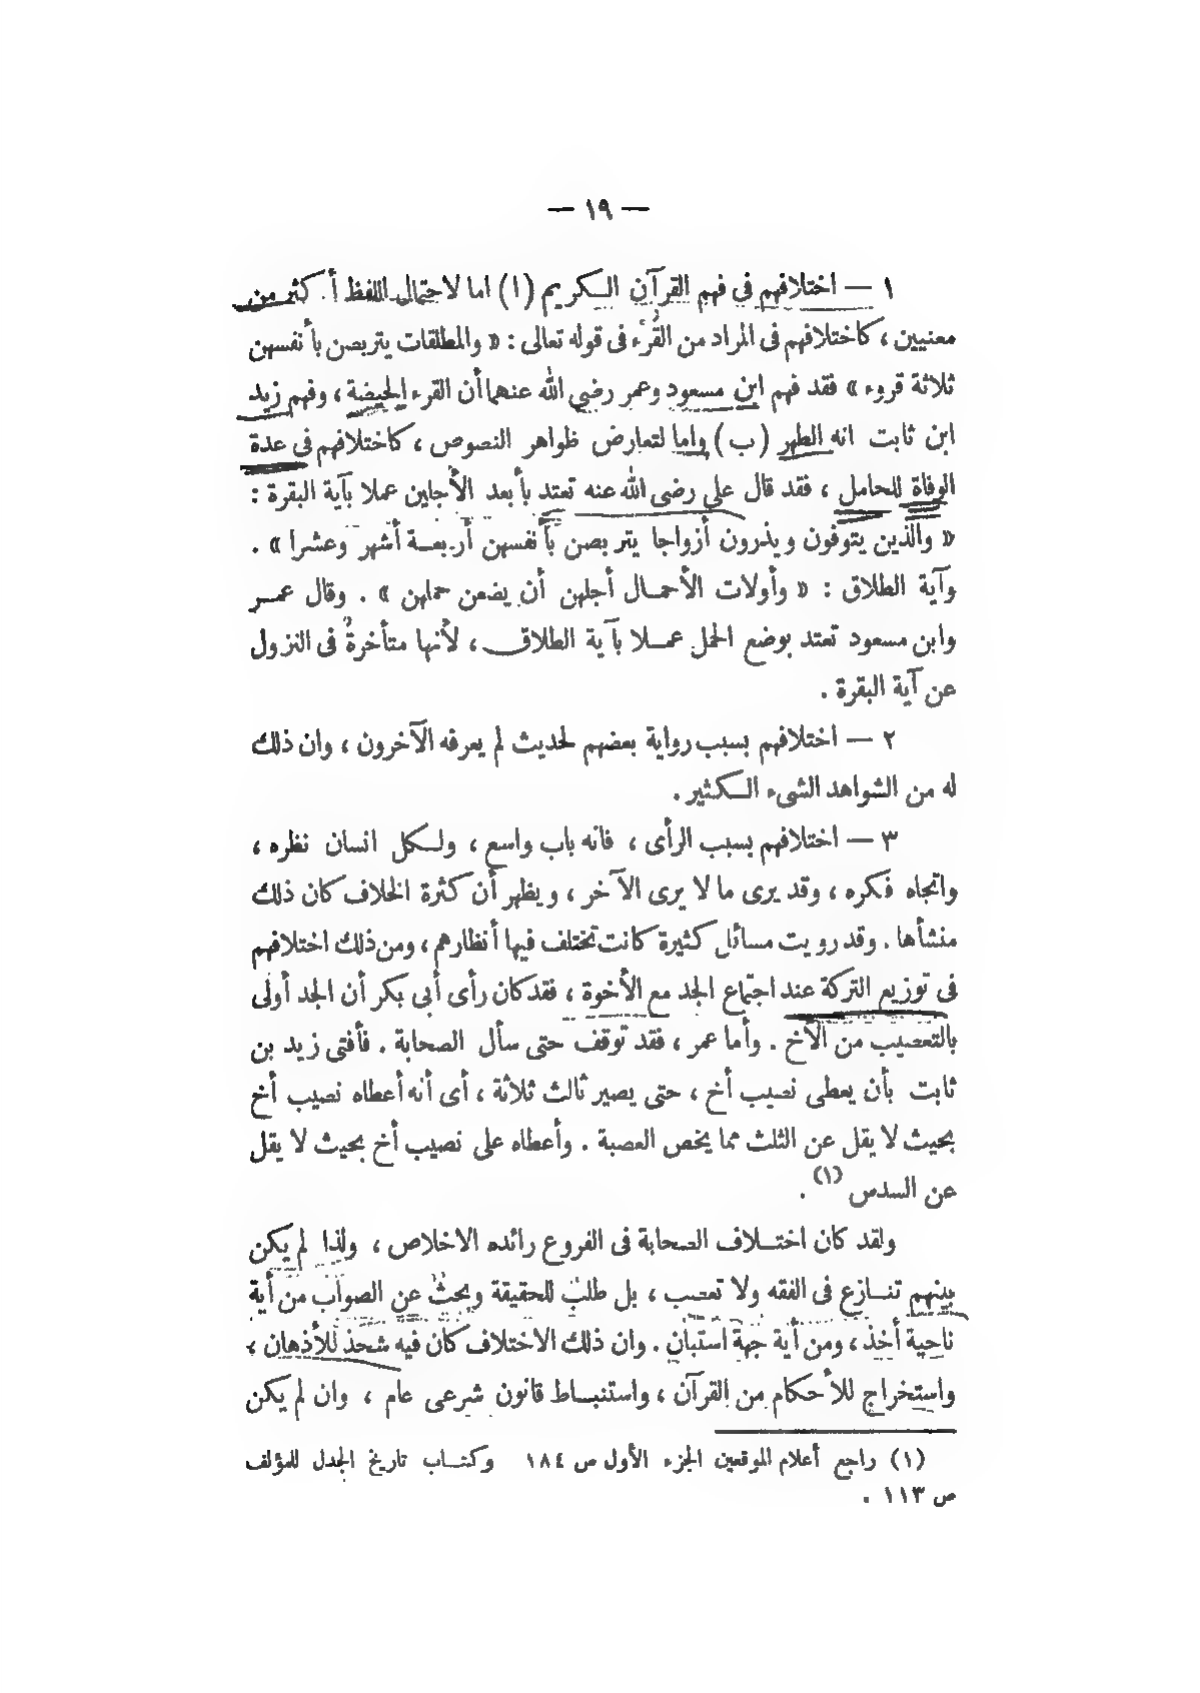 — ١٩ —
١ — اختلافهم فى فهم القرآن الكريم (ا) اما لاحتمال اللفظ أكثر من
معنيين ، كاختلافهم فى المراد من القُرْء فى قوله تعالى : « والمطلقات يتربصن بأنفسهن
ثلاثة قروء » فقد فهم ابن مسعود وعمر رضي الله عنهما أن القرء الحيضة ، وفهم زيد
ابن ثابت انه الطهر (ب) واما لتعارض ظواهر النصوص ، كاختلافهم فى عدة
الوفاة للحامل ، فقد قال على رضى الله عنه تعتد بأبعد الأجلين عملا بآية البقرة :
« والذين يتوفون ويذرون أزواجا يتربصن بأنفسهن أربعة أشهر وعشرا » .
وآية الطلاق : « وأولات الأحمال أجلهن أن يضعن حملهن » . وقال عمر
وابن مسعود تعتد بوضع الحمل عملا بآية الطلاق ، لأنها متأخرةٌ فى النزول
عن آية البقرة .
٢ — اختلافهم بسبب رواية بعضهم لحديث لم يعرفه الآخرون ، وان ذلك
له من الشواهد الشىء الكثير .
٣ — اختلافهم بسبب الرأى ، فانه باب واسع ، ولكل انسان نظره ،
واتجاه فكره ، وقد يرى ما لا يرى الآخر ، ويظهر أن كثرة الخلاف كان ذلك
منشأها . وقد رويت مسائل كثيرة كانت تختلف فيها أنظارهم ، ومن ذلك اختلافهم
فى توزيع التركة عند اجتماع الجد مع الأخوة ، فقد كان رأى أبى بكر أن الجد أولى
بالتعصيب من الأخ . وأما عمر ، فقد توقف حتى سأل الصحابة . فأفتى زيد بن
ثابت بأن يعطى نصيب أخ ، حتى يصير ثالث ثلاثة ، أى أنه أعطاه نصيب أخ
بحيث لا يقل عن الثلث مما يخص العصبة . وأعطاه على نصيب أخ بحيث لا يقل
عن السدس (١) .
ولقد كان اختلاف الصحابة فى الفروع رائده الاخلاص ، ولذا لم يكن
بينهم تنازع فى الفقه ولا تعصب ، بل طلبٌ للحقيقة وبحثٌ عن الصواب من أية
ناحية أخذ ، ومن أية جهة استبان . وان ذلك الاختلاف كان فيه شحذ للأذهان ،
واستخراج للأحكام من القرآن ، واستنباط قانون شرعى عام ، وان لم يكن
(١) راجع أعلام الموقعين الجزء الأول ص ١٨٤ وكتاب تاريخ الجدل للمؤلف
ص ١١٣ .